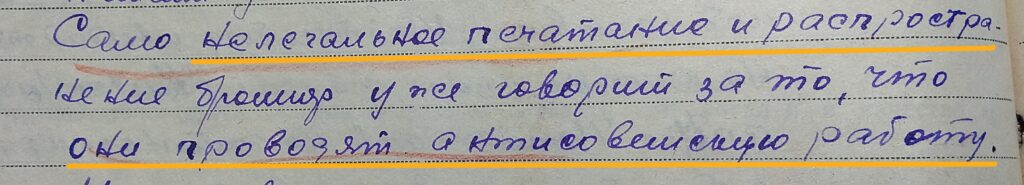 Само нелегальное печатание и распростра-
нение брошюр уже говорит за то, что
они проводят антисоветскую работу.